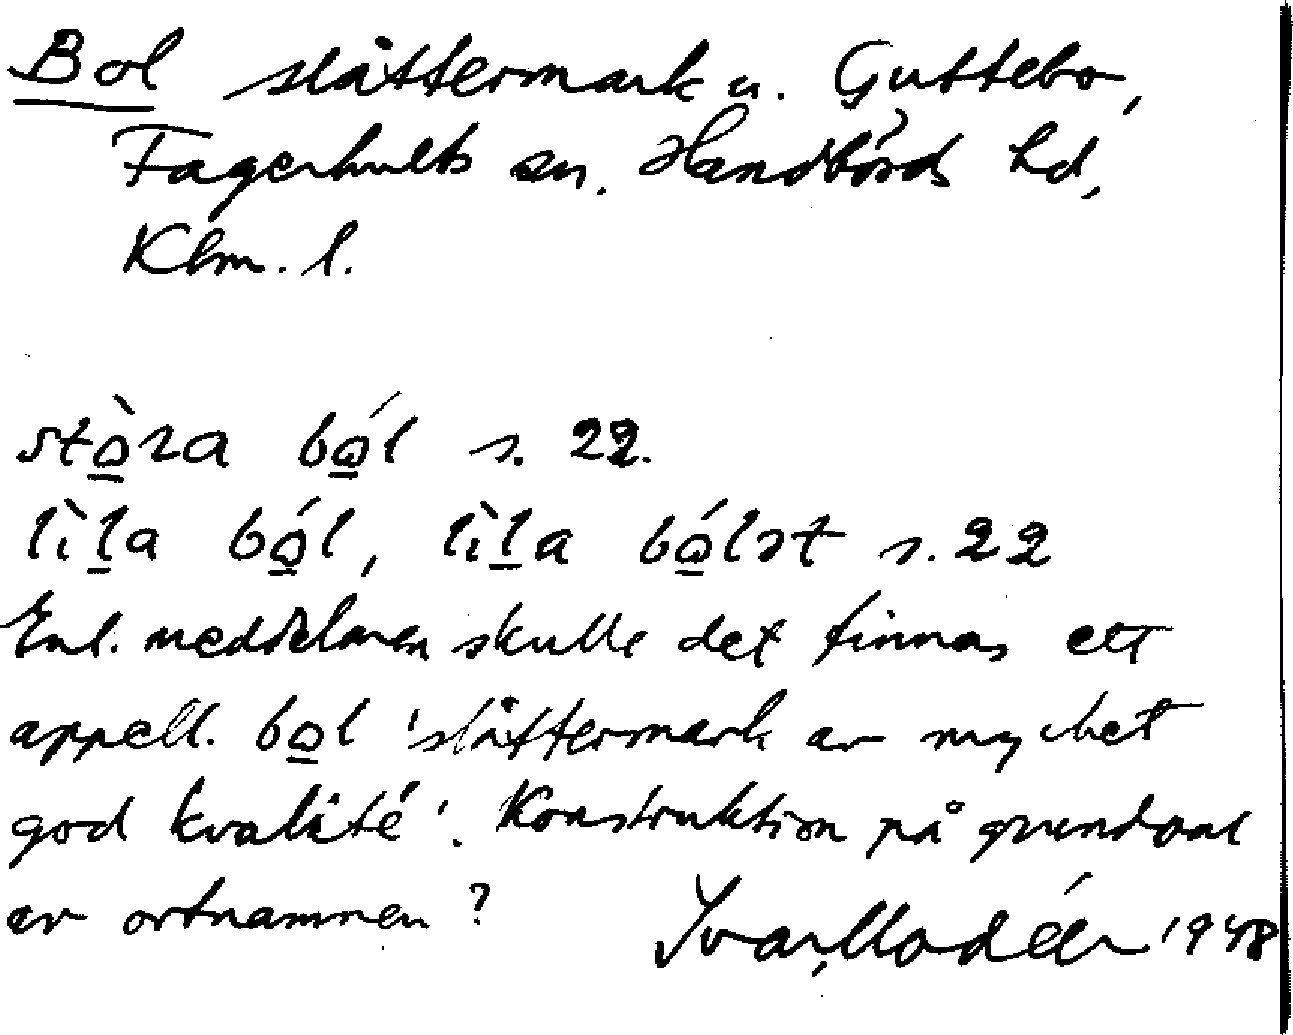 Bol slåttermark u. Guttebo,
Fagerhults sn. Handbörds hd,
Klm. l.
stò̱ra bó̱l s. 22.
lìḻa bó̱l, lìḻa bó̱lət s. 22
Enl. meddelaren skulle det finnas ett
appell. bo̱l 'slåttermark av mycket
god kvalité'. Konstruktion på grundval
av ortnamnen? Ivar Modéer 1948